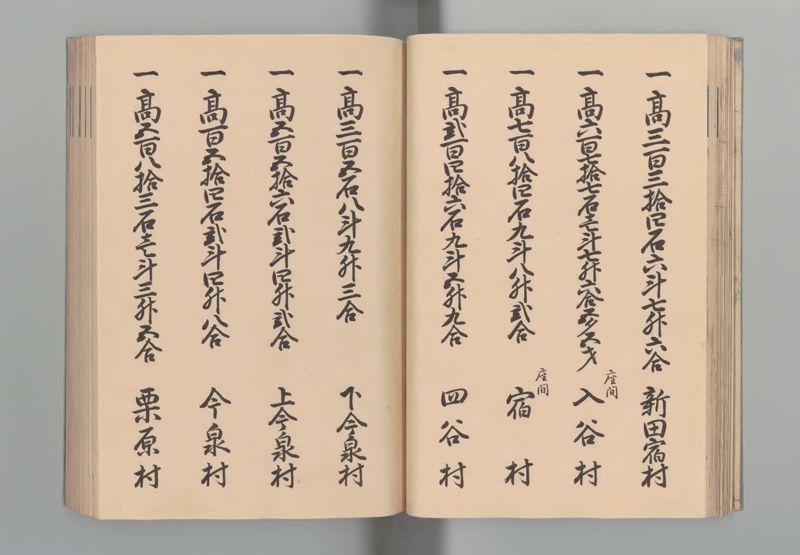 一 高三百三拾四石六斗七升六合 新田宿村
一 高六百七拾七石壱斗七升六合五夕五才 座間 入谷村
一 高七百八拾四石九斗八升弐合 座間 宿村
一 高弐百四拾六石九斗五升九合 四谷村
一 高三百五石八斗九升三合 下今泉村
一 高五百五拾六石弐斗四升弐合 上今泉村
一 高百五拾四石弐斗四升八合 今泉村
一 高五百八拾三石壱斗三升五合 栗原村